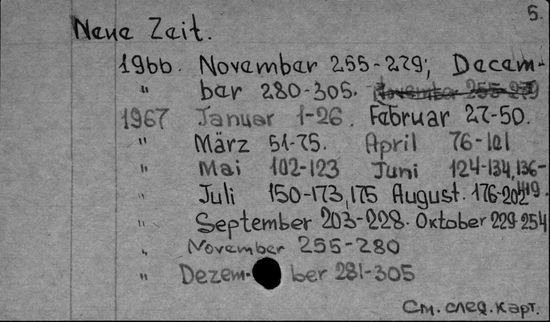 5.
Neue Zeit.
1966. November 255-279; Decem-
" ber 280-305. November 255-279
1967 Januar 1-26. Februar 27-50.
" März 51-75. April 76-101
" Mai 102-123 Juni 124-134,136-
149.
" Juli 150-173,175 August. 176-202
" September 203-228. Oktober 229-254
" November 255-280
" Dezem- ber 281-305
См. след. карт.